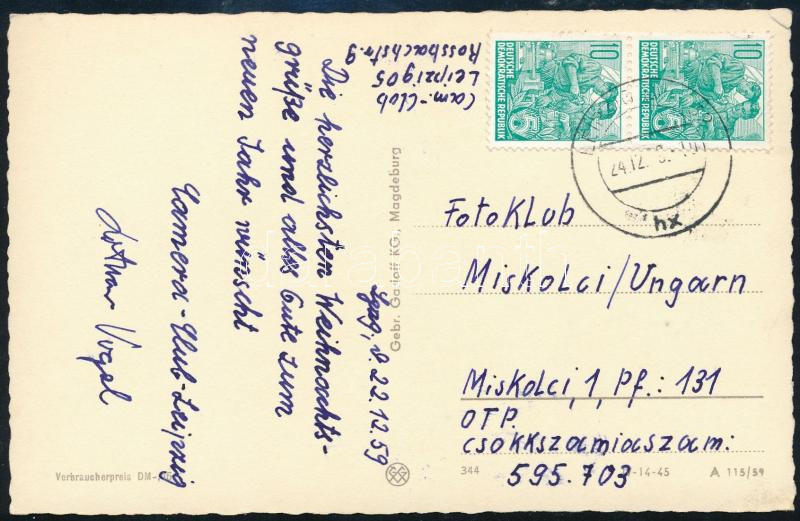 Cam.-Club
Leipzig O5
Rossbachstr. 9
Lpzg., d. 22.12.59
Die herzlichsten Weihnachts-
grüße und alles Gute zum
neuen Jahr wünscht
Camera-Club-Leipzig
Lothar Vogel
Gebr. Garloff KG., Magdeburg
Verbraucherpreis DM
10
DEUTSCHE
DEMOKRATISCHE REPUBLIK
10
DEUTSCHE
DEMOKRATISCHE REPUBLIK
24.12.
hx
FotoKlub
Miskolci/Ungarn
Miskolci, 1, Pf.: 131
OTP.
csokkszamiaszam:
595.703
344
-14-45
A 115/59